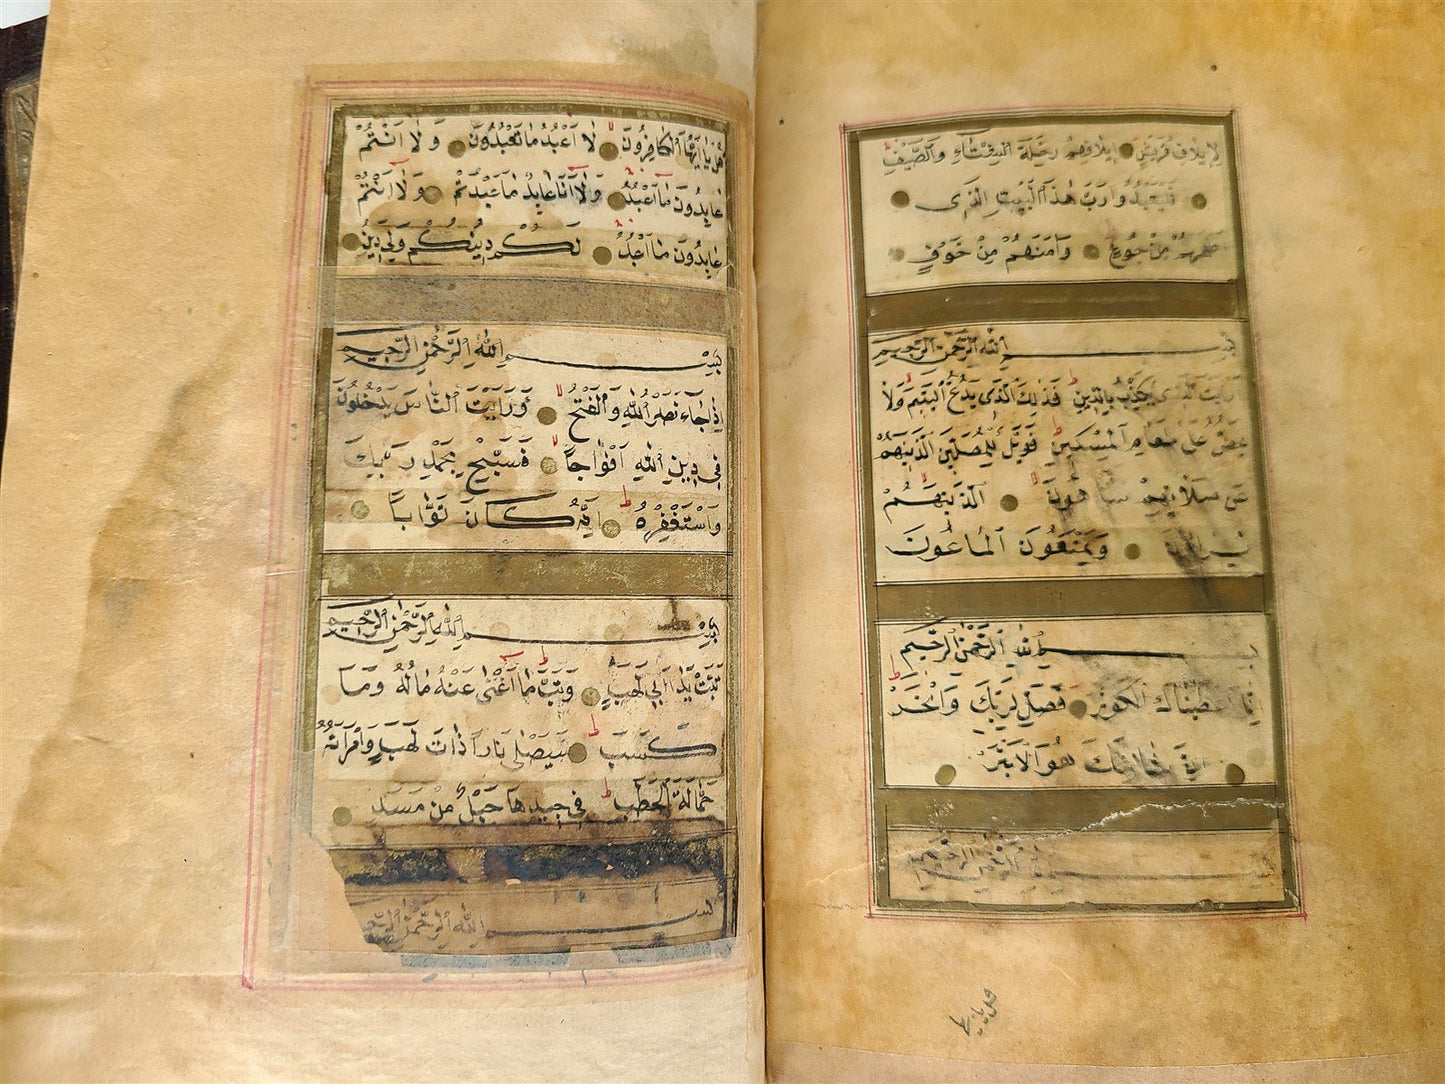 لِإِيلَافِ قُرَيْشٍ إِيلَافِهِمْ رِحْلَةَ الشِّتَاءِ وَالصَّيْفِ
فَلْيَعْبُدُوا رَبَّ هٰذَا الْبَيْتِ الَّذِى
مِنْ جُوعٍ وَاٰمَنَهُمْ مِنْ خَوْفٍ
بِسْمِ اللهِ الرَّحْمٰنِ الرَّحِيمِ
رَاَيْتَ الَّذِى يُكَذِّبُ بِالدِّينِ فَذٰلِكَ الَّذِى يَدُعُّ الْيَتِيمَ وَلَا
يَحُضُّ عَلٰى طَعَامِ الْمِسْكِينِ فَوَيْلٌ لِلْمُصَلِّينَ الَّذِينَهُمْ
عَنْ صَلَاتِهِمْ سَاهُونَ الَّذِينَهُمْ
وَيَمْنَعُونَ الْمَاعُونَ
بِسْمِ اللهِ الرَّحْمٰنِ الرَّحِيمِ
اِنَّا اَعْطَيْنَاكَ الْكَوْثَرَ فَصَلِّ لِرَبِّكَ وَانْحَرْ
اِنَّ شَانِئَكَ هُوَ الْاَبْتَرُ
بِسْمِ اللهِ الرَّحْمٰنِ الرَّحِيمِ
قل يا ايها
قُلْ يَا اَيُّهَا الْكَافِرُونَ لَا اَعْبُدُ مَا تَعْبُدُونَ وَلَا اَنْتُمْ
عَابِدُونَ مَا اَعْبُدُ وَلَا اَنَا عَابِدٌ مَا عَبَدْتُمْ وَلَا اَنْتُمْ
عَابِدُونَ مَا اَعْبُدُ لَكُمْ دِينُكُمْ وَلِىَ دِينِ
بِسْمِ اللهِ الرَّحْمٰنِ الرَّحِيمِ
اِذَا جَاءَ نَصْرُ اللهِ وَالْفَتْحُ وَرَاَيْتَ النَّاسَ يَدْخُلُونَ
فِى دِينِ اللهِ اَفْوَاجًا فَسَبِّحْ بِحَمْدِ رَبِّكَ
وَاسْتَغْفِرْهُ اِنَّهُ كَانَ تَوَّابًا
بِسْمِ اللهِ الرَّحْمٰنِ الرَّحِيمِ
تَبَّتْ يَدَا اَبِى لَهَبٍ وَتَبَّ مَا اَغْنٰى عَنْهُ مَالُهُ وَمَا
كَسَبَ سَيَصْلٰى نَارًا ذَاتَ لَهَبٍ وَامْرَاَتُهُ
حَمَّالَةَ الْحَطَبِ فِى جِيدِهَا حَبْلٌ مِنْ مَسَدٍ
بِسْمِ اللهِ الرَّحْمٰنِ الرَّحِيمِ